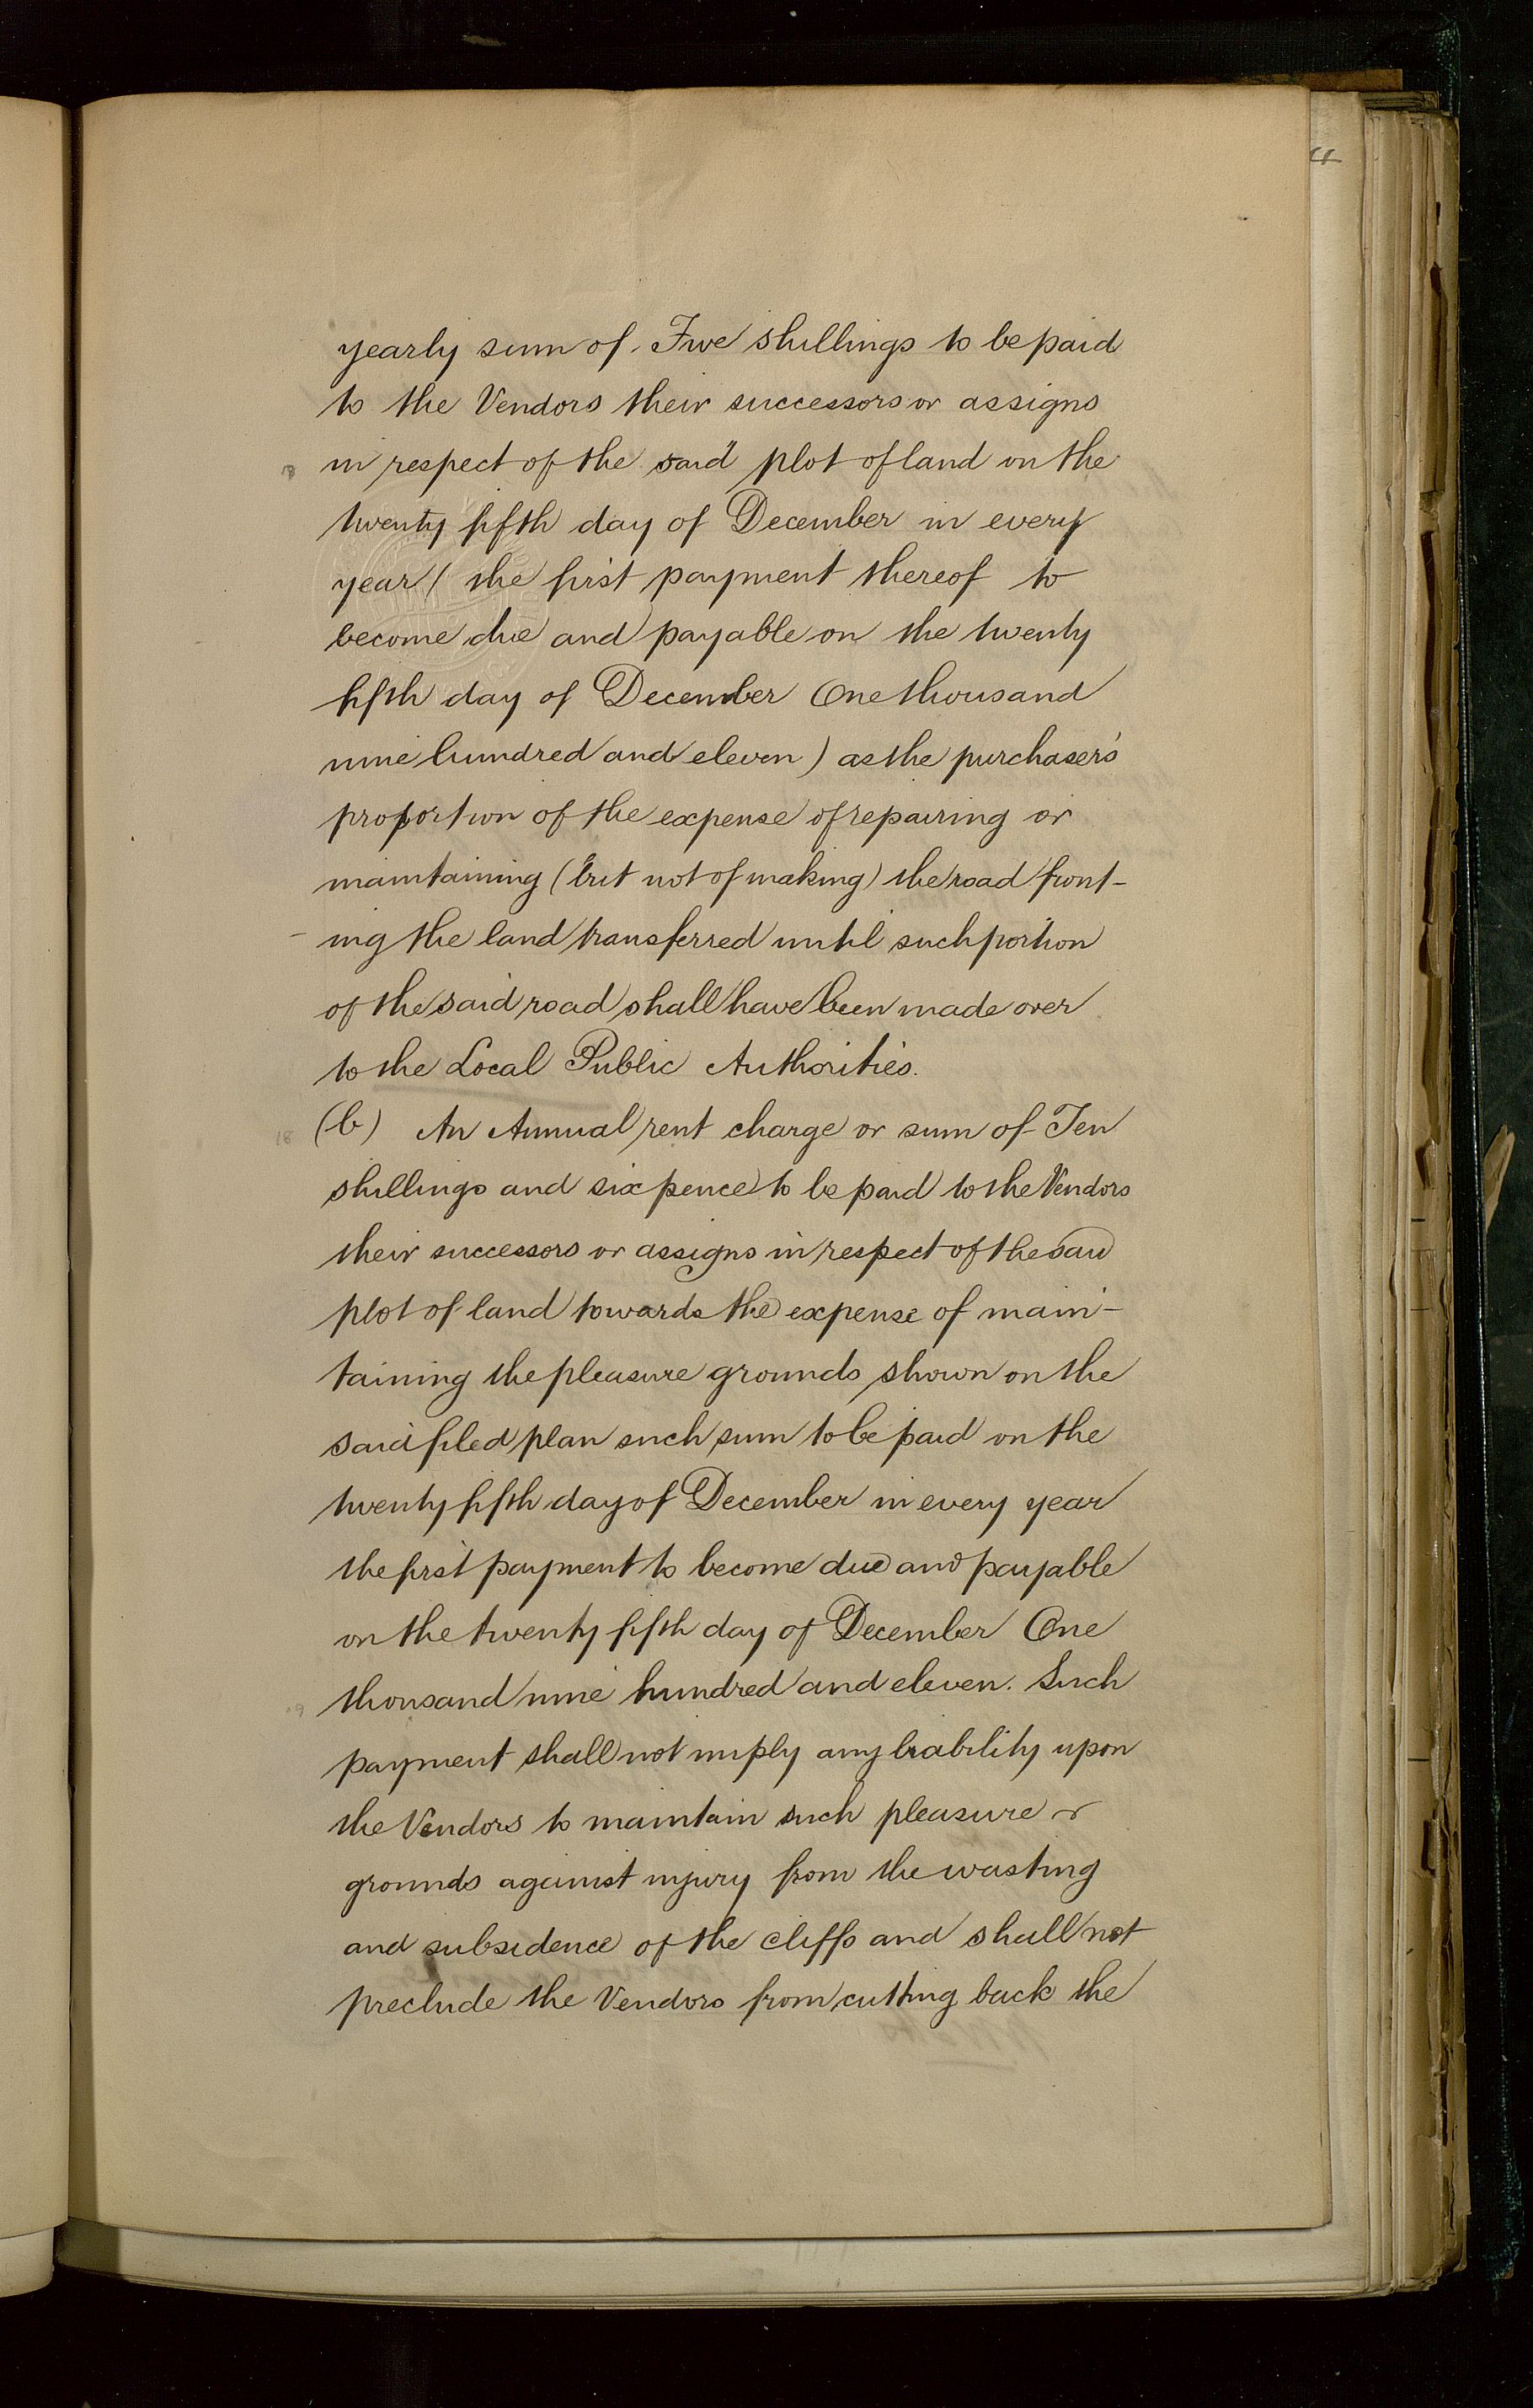 yearly sum of Five shillings to be paid
to the Vendors their successors or assigns
in respect of the said plot of land on the
twenty fifth day of December in every
year ( the first payment thereof to
become due and payable on the twenty
fifth day of December One thousand
nine hundred and eleven ) as the purchaser's
proportion of the expense of repairing or
maintaining (but not of making) the road front-
- ing the land transferred until such portion
of the said road shall have been made over
to the Local Public Authorities.
(b) An Annual rent charge or sum of Ten
shillings and six pence to be paid to the Vendors
their successors or assigns in respect of the said
plot of land towards the expense of main-
taining the pleasure grounds shown on the
said filed plan such sum to be paid on the
twenty fifth day of December in every year
the first payment to become due and payable
on the twenty fifth day of December One
thousand nine hundred and eleven. Such
payment shall not imply any liability upon
the Vendors to maintain such pleasure
grounds against injury from the wasting
and subsidence of the cliffs and shall not
preclude the Vendors from cutting back the